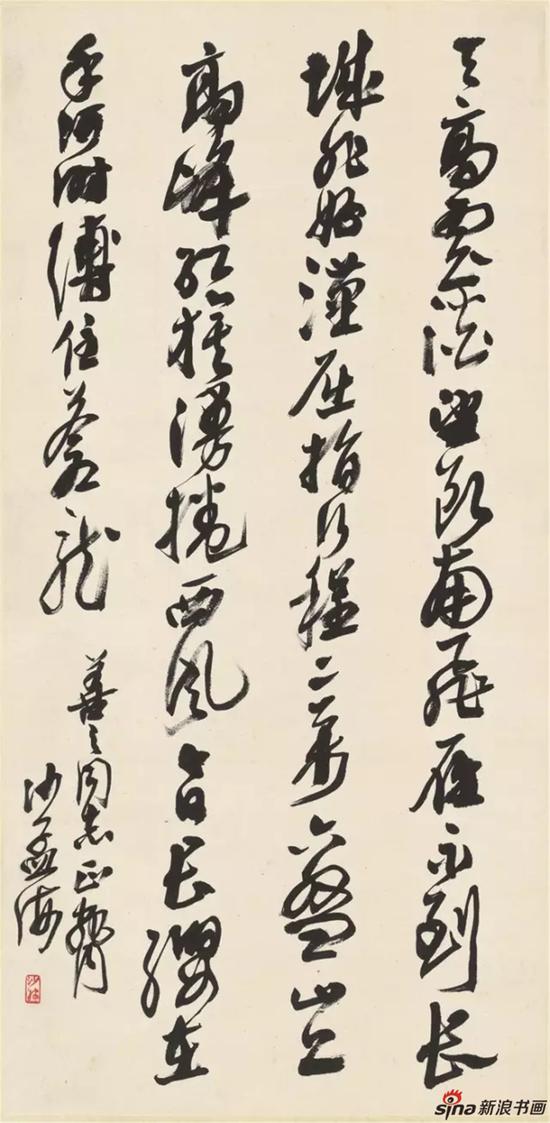 天高雲淡望断南飛雁不到长
城非好漢屈指行程二萬六盤山上
高峰红旗漫捲西风今日长纓在
手何时縛住蒼龍
善之同志正
沙孟海
sina新浪书画